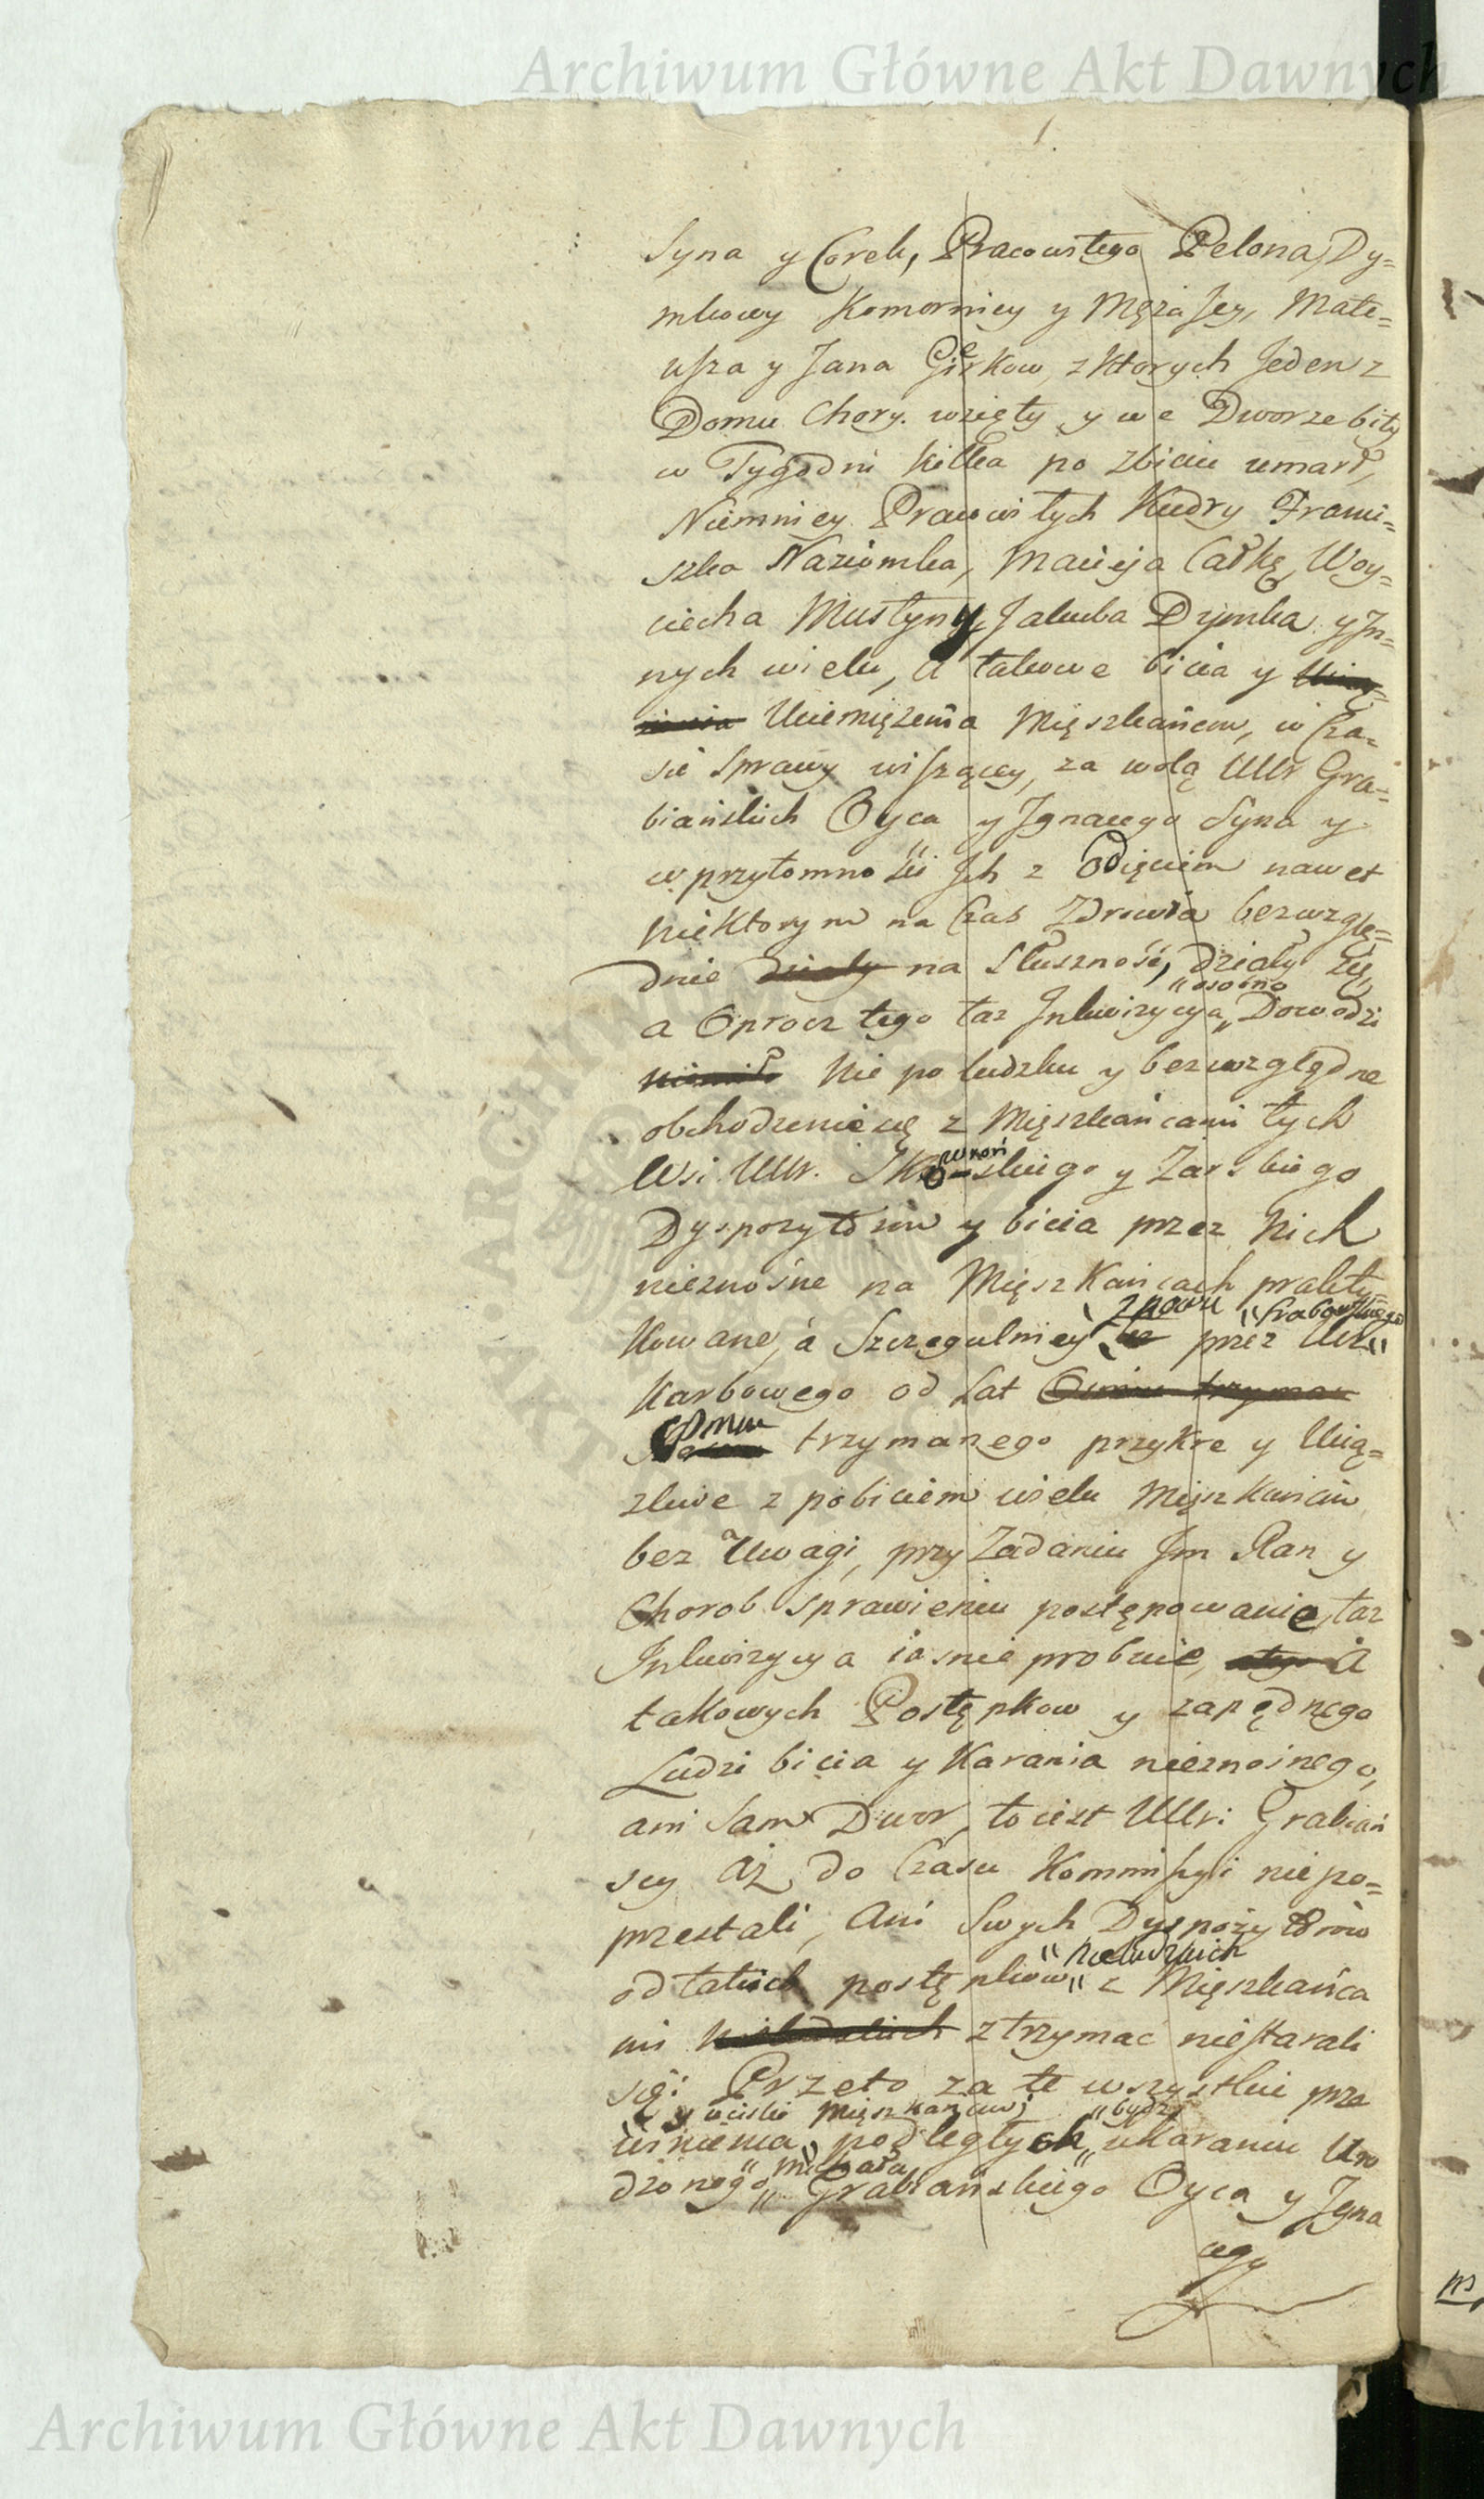 Archiwum Główne Akt Dawnych
Syna y Corek, Pracowitego Pelona, Dy=
mkowy Komornicy y Męża Jey, Mate=
usza y Jana Gierkow, z ktorych Jeden z
Domu Chory. wzięty y we Dworze bity
w Tygodni kilka po zbiciu umarł,
Niemniey Pracowitych Kudry Franci=
szka Naziomka, Macieja Całkę, Woy=
ciecha Mustyny, Jakuba Dymka y In=
nych wielu, a takowe bicia y
Uciemiężenia Mięszkańcow, w Cza=
sie Sprawy wiszącey, za wolą UUr Gra=
biańskich Oyca y Ignacego Syna y
w przytomności Ich z Odięciem nawet
niektorym na Czas Zdrowia bezwzglę=
dnie działy na Słuszność, działy się,
"osobno
a Oprocz tego taż Inkwizycya " Dowodzi
Nie po ludzku y bezwzględne
obchodzenie się z Mięszkańcami tych
Wsi UUr. skiego y Zarskiego
Dyspozytorow y bicia przez Nich
nieznośne na Mięszkańcach prakty=
znowu "Grabowskiego
kowane, á Szczegulniey przez Ur "
Karbowego od Lat Osmiu trzyman
Osmiu trzymanego przykre y Ucią=
żliwe z pobiciem wielu Mięszkańcow
bez Uwagi, przy Zadaniu Im Ran y
Chorob sprawieniu postępowanie, taż
Inkwizycya iaśnie probuie, A
takowych Postępkow y zapędnego
Ludzi bicia y Karania nieznośnego,
ani Sam Dwor, to iest UUr: Grabiań
scy Aż do Czasu Kommissyi nie po=
przestali, Ani Swych Dyspozytorow
"nieludzkich
od takich postępkow " z Mięszkańca
mi nieludzkich ztrzymać nie starali
się: Przeto za te wszystkie prze
y uciski Mięszkańcow "bydź
winienia podległych " ukaraniu Uro
" Michała
dzonego " Grabiańskiego Oyca y Igna
cego
Archiwum Główne Akt Dawnych